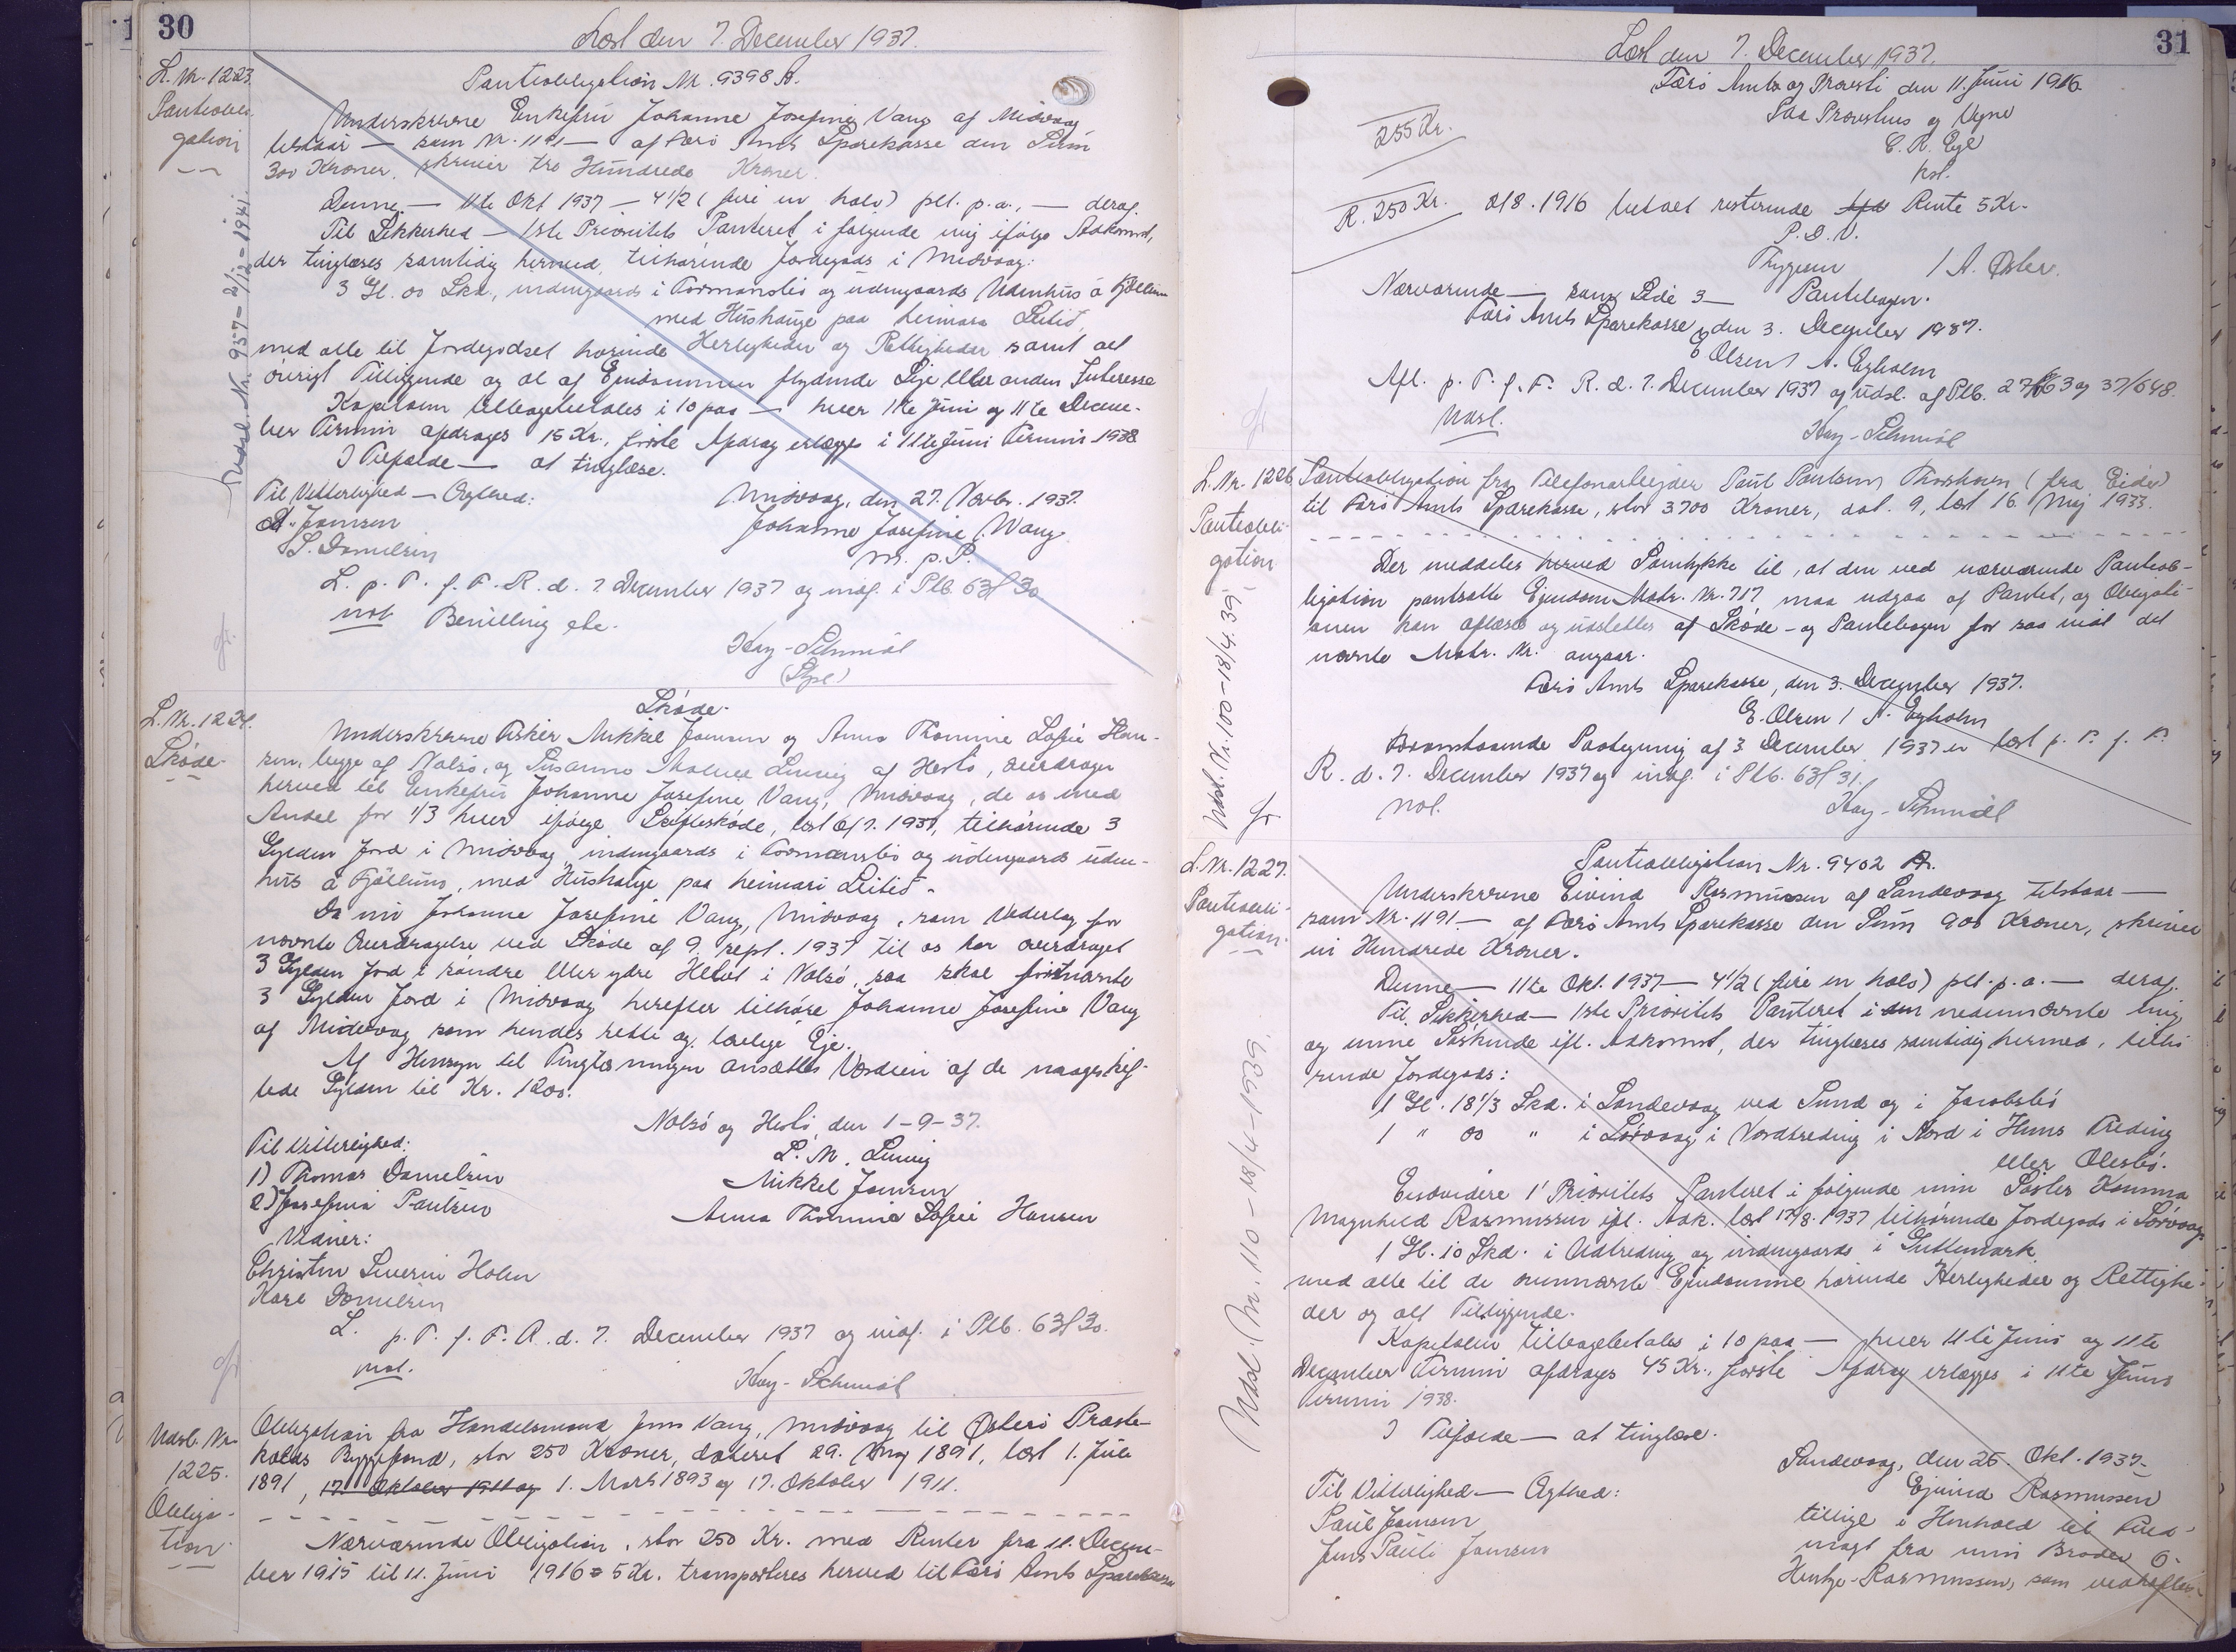 30
Læst den 7. December 1937.
L. Nr. 1223.
Pantobli-
gation
Udsl. Nr. 937 - 2/12 - 1941.
Pantobligation Nr. 9398 A.
Underskrevne Enkefru Johanne Josefine Vang af Midvaag
tilstaar — som Nr. 1191 — af Færø Amts Sparekasse den Sum
300 Kroner, skriver tre Hundrede Kroner.
Denne — 11te Okt 1937 — 4 1/2 (fire en halv) pCt. p.a., — deraf.
Til Sikkerhed — 1ste Prioritets Panteret i følgende mig ifølge Adkomst,
der tinglæses samtidig hermed, tilhørende Jordegods i Midvaag:
3 Gl. 00 Skd., indengaards i Formansbø og udengaards Udenhus á Fjøllum
med Hushauge paa heimara Leitið,
med alle til Jordegodset hørende Herligheder og Rettigheder samt alt
øvrigt Tilliggende og al af Ejendommen flydende Leje eller anden Interesse
Kapitalen tilbagebetales i 10 paa — hver 11te Juni og 11te Decem-
ber Termin afdrages 15 Kr., første Afdrag erlægges i 11te Juni Termin 1938
I Tilfælde — at tinglæse.
Til Vitterlighed — Ægthed:
Midvaag, den 27. Novbr. 1937.
Joensen
Johanne Josefine Vang
S. Danielsen
m. p. P.
L. p. T. f. F. R. d. 7. December 1937 og indf. i Plb. 63 f 30
not. Bevilling etc.
Kay-Schmidt
L. Nr. 1224.
Skøde
Skøde.
Underskrevne Fisker Mikkel Joensen og Anna Thomine Sofie Han-
sen, begge af Nolsø, og Susanne Malene Liunig af Hestø, overdrager
herved til Enkefru Johanne Josefine Vang, Midvaag, de os med
Andel for 1/3 hver ifølge Skifteskøde, læst 6/7. 1937, tilhørende 3
Gylden Jord i Midvaag, indengaards i Formansbø og udengaards uden-
hus á Fjøllum, med Hushauge paa heimari Leitið.
Da nu Johanne Josefine Vang, Midvaag, som Vederlag for
nævnte Overdragelse ved Skøde af 9. sept. 1937 til os har overdraget
3 Gylden Jord i søndre eller ydre Helvt i Nolsø, saa skal førstnævnte
3 Gylden Jord i Midvaag herefter tilhøre Johanne Josefine Vang
af Midvaag som hendes rette og lovlige Eje.
Af Hensyn til Tinglæsningen ansættes Værdien af de mageskif-
tede Gylden til Kr. 1200.
Nolsø og Hestø, den 1-9-37.
Til Vitterlighed:
S. M. Liunig
1) Thomas Danielsen
Mikkel Joensen
2) Josefina Paulsen
Anna Thomine Sofie Hansen
Vidner:
Christen Severin Holm
Karl Danielsen
L. p. T. f. F. R. d. 7. December 1937 og indf. i Plb. 63 f 30.
not.
Kay-Schmidt
Udsl. Nr.
1225.
Obliga-
tion
Obligation fra Handelsmand Jens Vang, Midvaag til Østerø Præste-
kalds Byggefond, stor 250 Kroner, dateret 29. Maj 1891, læst 1. Juli
1891, 17. Oktober 1911 og 1. Marts 1893 og 17. Oktober 1911.
Nærværende Obligation, stor 250 Kr. med Renter fra 11. Decem-
ber 1915 til 11. Juni 1916 = 5 Kr. transporteres herved til Færø Amts Sparekasse
31
Læst den 7. December 1937.
Færø Amts og Provsti den 11. Juni 1916.
255 Kr.
C. R. Ege
kst.
R. 250 Kr.
2/8. 1916 betalt resterende Rente 5 Kr.
P. S. V.
Thygesen / A. Øster.
Nærværende — samt Side 3 — Pantebogen.
Færø Amts Sparekasse, den 3. December 1937.
E Olsen / A. Egholm
Afl. p. T. f. F. R. d. 7. December 1937 og udsl. af Plb. 27/663 og 37/648.
Udsl.
Kay-Schmidt
L. Nr. 1226
Pantobli-
gation
Udsl. Nr. 100 - 18/4. 39.
Pantobligation fra Telefonarbejder Paul Poulsen, Thorshavn (fra Eide)
til Færø Amts Sparekasse, stor 3700 Kroner, dat. 9, læst 16. Maj 1933.
Der meddeles herved Samtykke til, at den ved nærværende Pantob-
ligation pantsatte Ejendom Matr. Nr. 717 maa udgaa af Pantet, og Obligati-
onen kan aflæses og udslettes af Skøde- og Pantebogen for saa vidt det
nævnte Matr. Nr. angaar.
Færø Amts Sparekasse, den 3. December 1937.
E. Olsen / A. Egholm
Foranstaaende Paategning af 3 December 1937 er læst p. T. f. F.
R. d. 7. December 1937 og indf. i Plb. 63 f 31.
not.
Kay-Schmidt
L. Nr. 1227.
Pantobli-
gation.
Udsl. Nr. 110 - 18/4 - 1939.
Pantobligation Nr. 9402 A.
Underskrevne Eivind Rasmussen af Sandevaag tilstaar —
som Nr. 1191 — af Færø Amts Sparekasse den Sum 900 Kroner, skriver
ni Hundrede Kroner.
Denne — 11te Okt. 1937 — 4 1/2 (fire en halv) pCt. p. a. — deraf.
Til Sikkerhed — 1ste Prioritets Panteret i den nedennævnte mig
og mine Søskende ifl. Adkomst, der tinglæses samtidig hermed, tilhø-
rende Jordegods:
1 Gl. 18 1/3 Skd. i Sandevaag ved Sund og i Jacobsbø
1 " 00 " i Sørvaag i Nordtreding i Nord i Huns Treding
eller Olesbø.
Endvidere 1' Prioritets Panteret i følgende min Søster Hanna
Magnhild Rasmussen ifl. Adk. læst 17/8. 1937 tilhørende Jordegods i Sørvaag
1 Gl. 10 Skd. i Udtreding og indengaards i Guttemark
med alle til de ovennævnte Ejendomme hørende Herligheder og Rettighe-
der og alt Tilliggende.
Kapitalen tilbagebetales i 10 paa — hver 11te Juni og 11te
December Termin afdrages 45 Kr., første Afdrag erlægges i 11te Juni
Termin 1938.
I Tilfælde — at tinglæse.
Sandevaag, den 26. Okt. 1937.
Til Vitterlighed — Ægthed:
Ejvind Rasmussen
Paul Joensen
tillige i Henhold til Fuld-
Jens Pauli Joensen
magt fra min Broder O.
Hentze-Rasmussen, som vedhæftes.